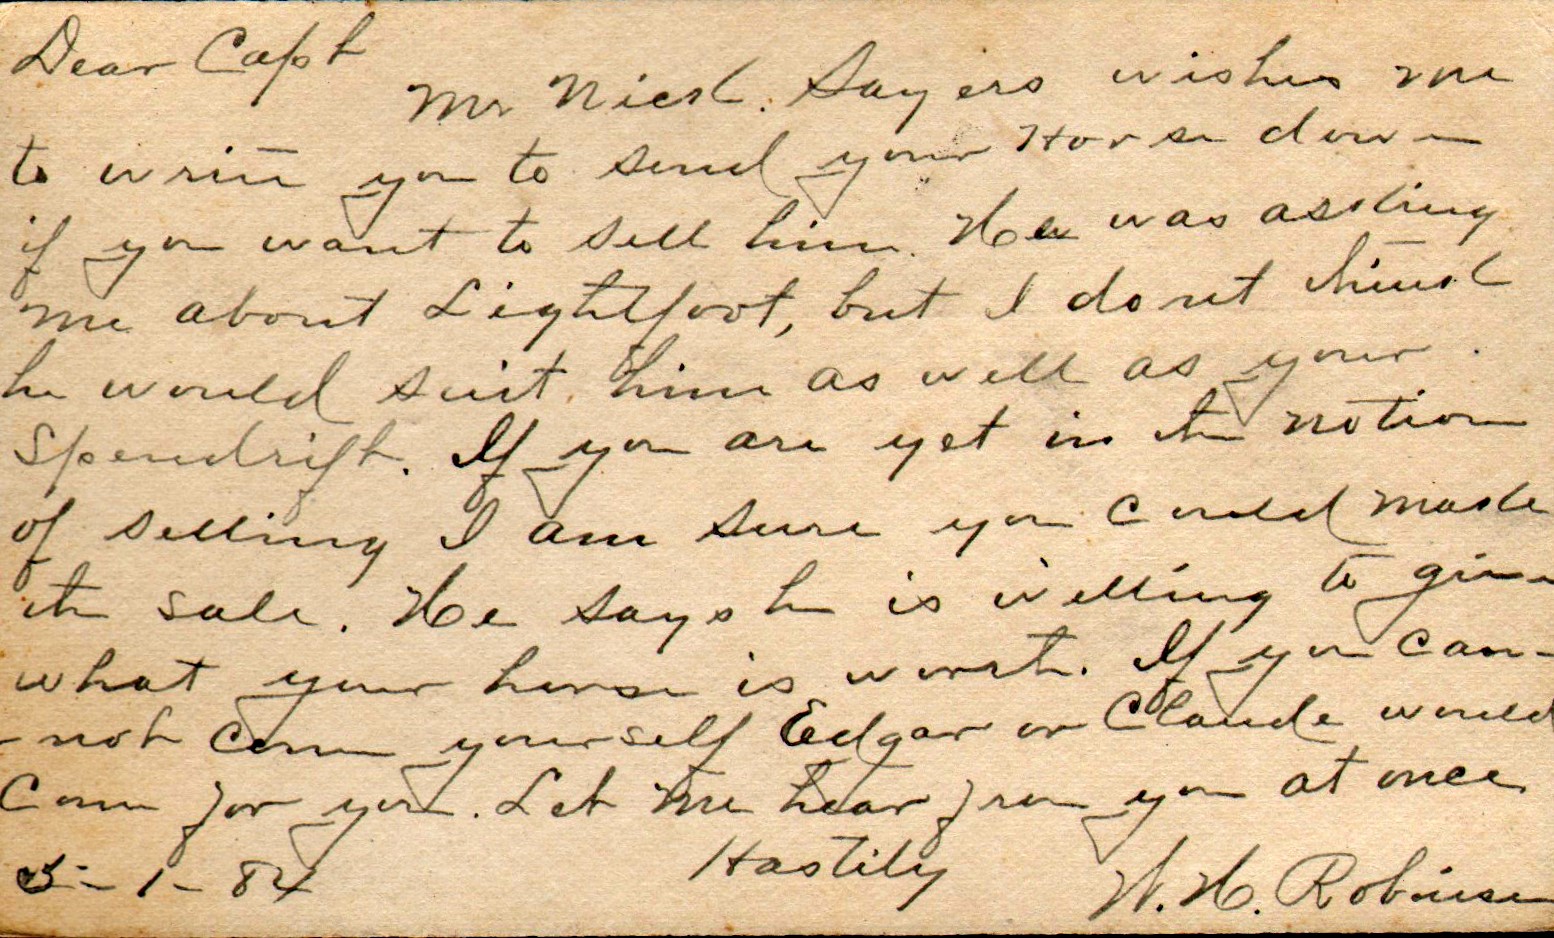 Dear Capt
Mr Nick. Sayers wishes me
to write you to send your Horse down
if you want to sell him. He was asking
me about Lightfoot, but I dont think
he would suit him as well as your
Spendrift. If you are yet in the notion
of selling I am sure you could make
the sale. He says he is willing to give
what your horse is worth. If you can-
-not come yourself Edgar or Claude would
come for you. Let me hear from you at once
Hastily
5-1-84 W. H. Robinson